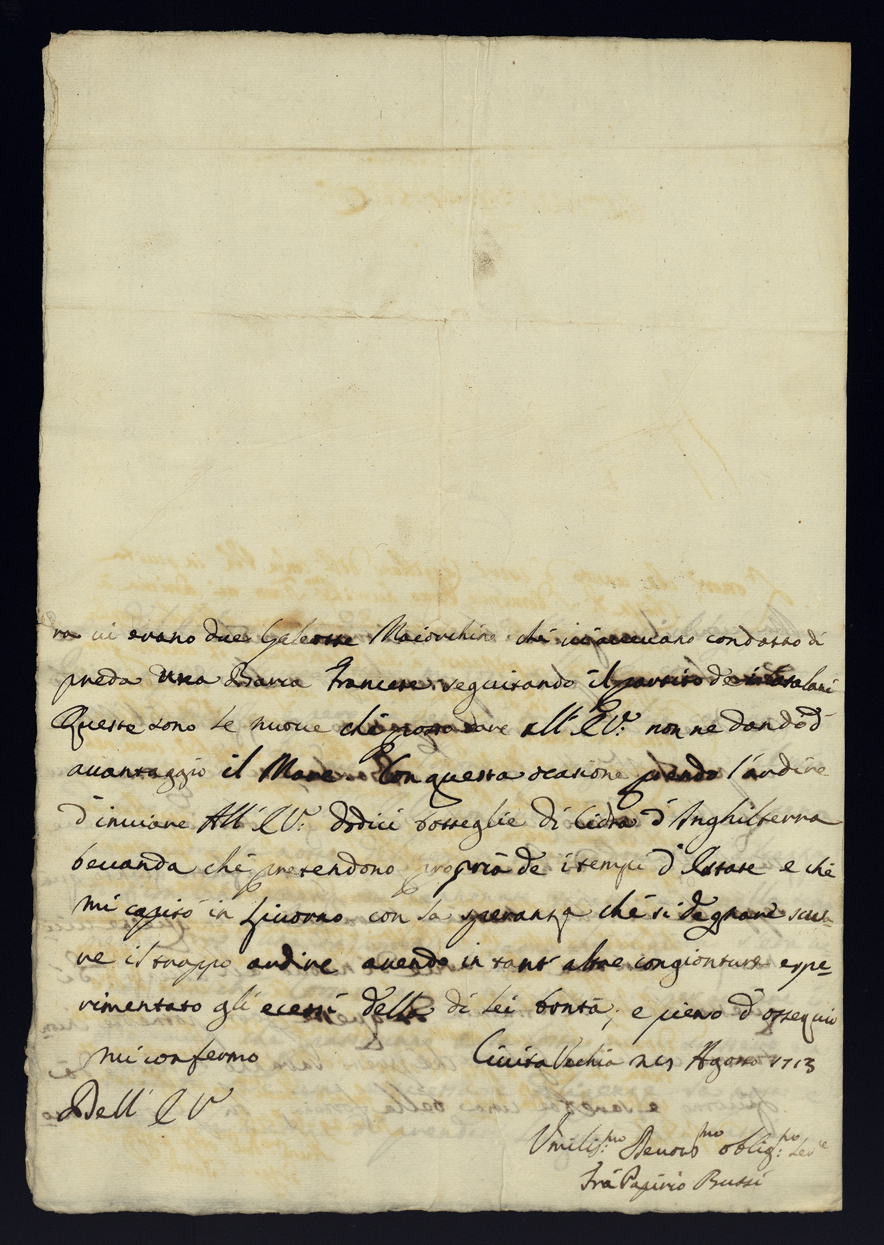 ra vi erano due Galeotte Maiorchine che vi aveuano condotto di
preda una Barca Francese seguitando il partito de i Catalani
Queste sono le nuoue che posso dare all' E V.ª non ne dando d'
auantaggio il Mare. Con questa ocasione prendo l'ardire
d'inuiare All' E V.ª dodici botteglie di Cidra d'Inghilterra
beuanda che pretendono propria de i tempi d'Estate e che
mi capitò in Liuorno con la speranza che si degnarà scu-
re il troppo ardire auendo in tant' altre congionture espe-
rimentato gli ecessi della di Lei bontà; e pieno d'ossequio
mi confermo Ciuita Vechia Agosto 1713
Dell' E V
Vmilis:mo Deuot:mo oblig:mo Ser:re
Frà Papirio Bussi